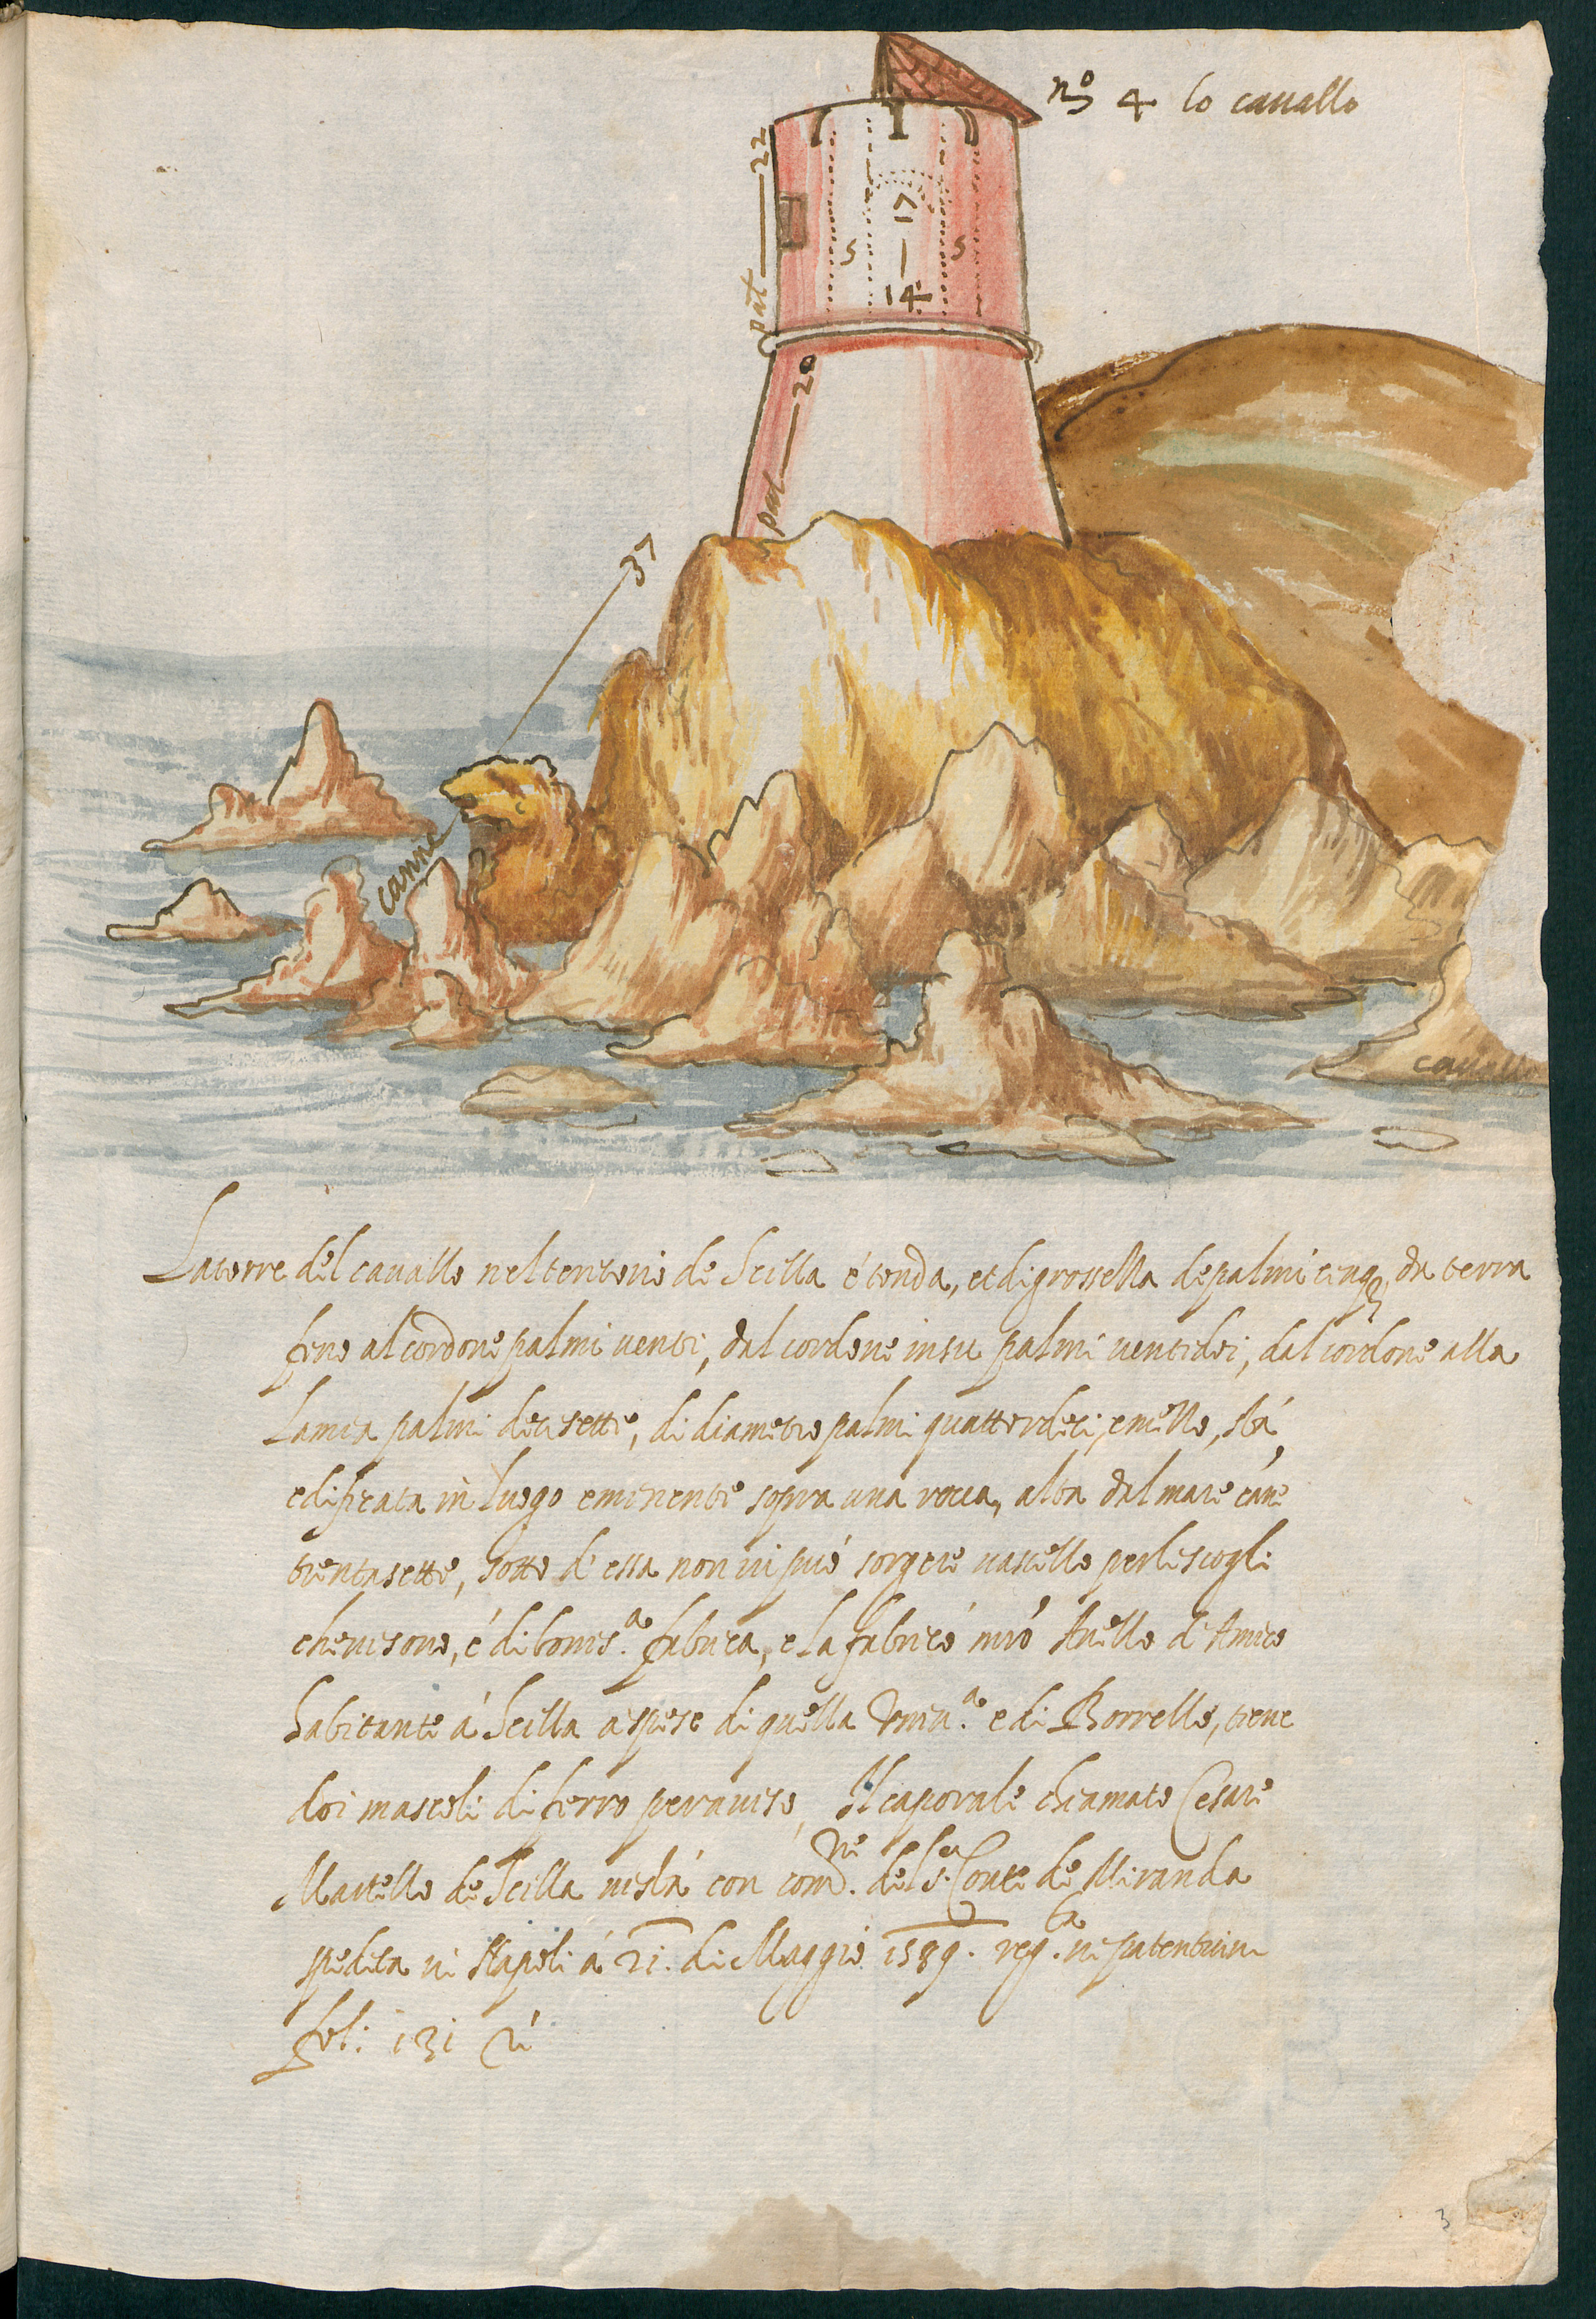 nº 4 lo cauallo
22
pal
17
5
5
14
20
pal
37
canne
cauallo
La torre del cauallo nel territorio de Scilla é tonda, et di grossezza de palmi cinq, da terra
fino al cordone palmi uenti, dal cordone in su palmi uentidoi, dal cordone alla
lamia palmi decisette, di diametro palmi quattordeci, e mezzo, stá
edificata in luogo eminente sopra una rocca, alta dal mare cáne
trentasette, sotto d'essa non ui puó sorgere uascello per le scogli
che ui sono, é di bonisª. fabrica, e la fabricó mró Anello d'Amico
habitante á Scilla a spese di quella Vniuª. e di Borrello, tiene
doi mascoli di ferro per auiso, Il caporale chiamato Cesare
Martello de Scilla ui stá con comne. del Sr. Conte de Miranda
spedita in Napoli á 21. di Maggio 1589. regta. in patentium
fol: 131
3